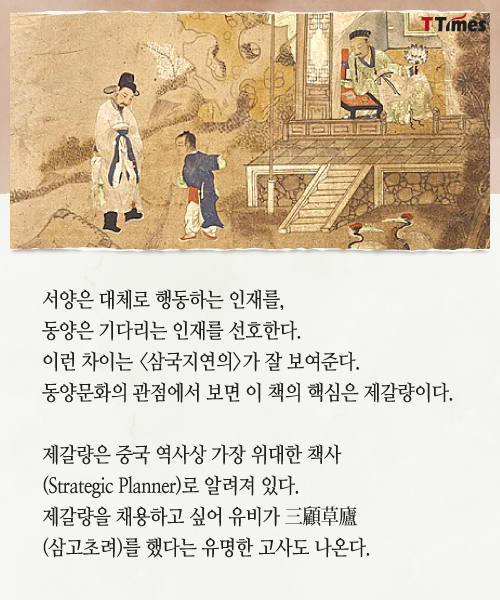 TTimes
서양은 대체로 행동하는 인재를,
동양은 기다리는 인재를 선호한다.
이런 차이는 〈삼국지연의〉가 잘 보여준다.
동양문화의 관점에서 보면 이 책의 핵심은 제갈량이다.
제갈량은 중국 역사상 가장 위대한 책사
(Strategic Planner)로 알려져 있다.
제갈량을 채용하고 싶어 유비가 三顧草廬
(삼고초려)를 했다는 유명한 고사도 나온다.